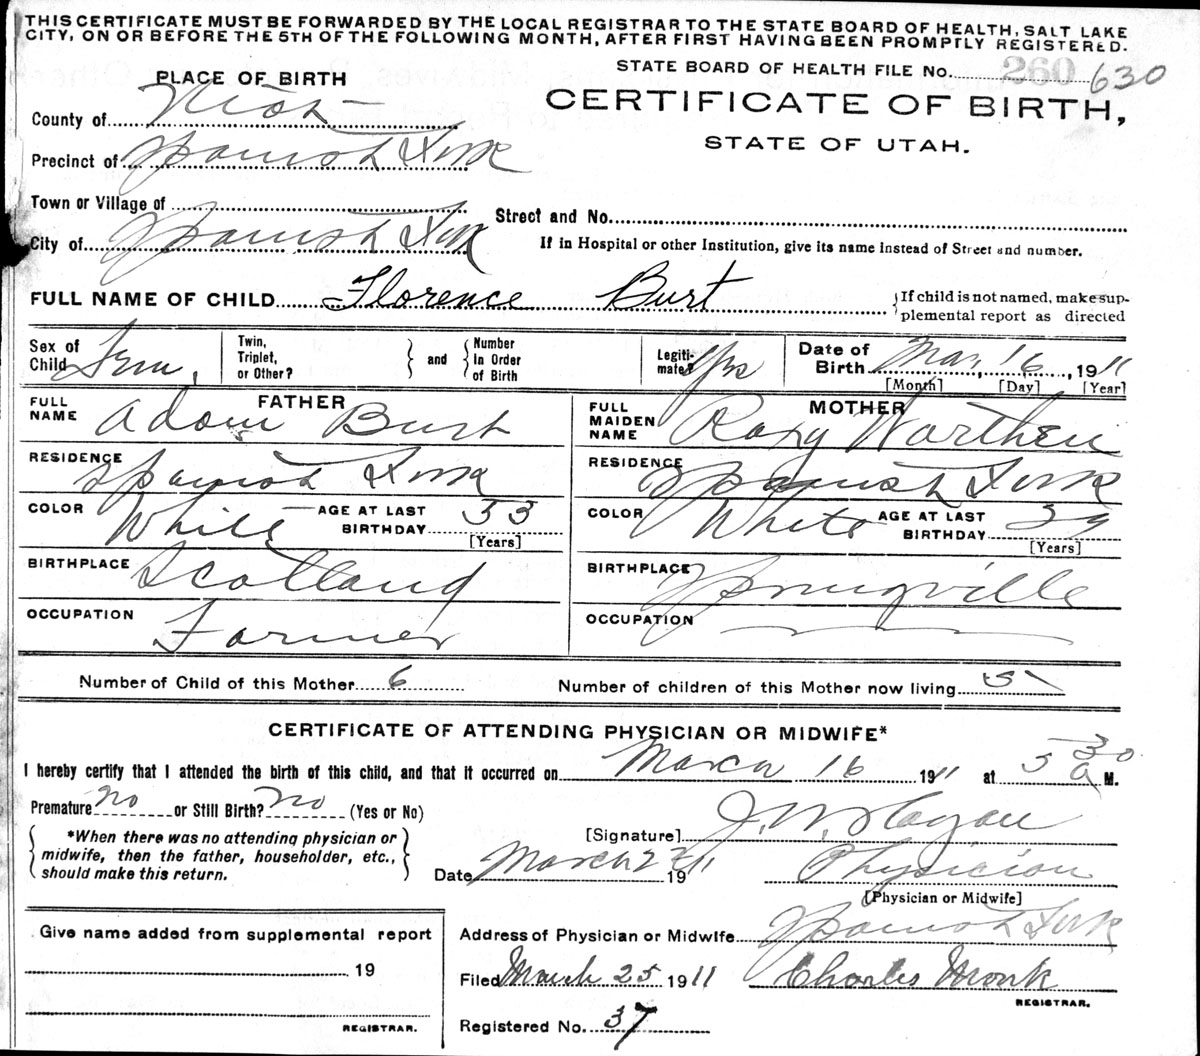 THIS CERTIFICATE MUST BE FORWARDED BY THE LOCAL REGISTRAR TO THE STATE BOARD OF HEALTH, SALT LAKE
CITY, ON OR BEFORE THE 5TH OF THE FOLLOWING MONTH, AFTER FIRST HAVING BEEN PROMPTLY REGISTERED.
STATE BOARD OF HEALTH FILE No. 260 630
PLACE OF BIRTH
CERTIFICATE OF BIRTH,
STATE OF UTAH.
County of Utah
Precinct of Spanish Fork
Town or Village of
Street and No.
City of Spanish Fork
If in Hospital or other Institution, give its name instead of Street and number.
FULL NAME OF CHILD Florence Burt
{If child is not named, make sup-
plemental report as directed
Sex of Child Fem.
Twin, Triplet, or Other?
and
Number In Order of Birth
Legiti-mate? Yes
Date of Birth Mar, 16, 1911
[Month] [Day] [Year]
FATHER
FULL NAME Adam Burt
RESIDENCE Spanish Fork
COLOR White
AGE AT LAST BIRTHDAY 33
[Years]
BIRTHPLACE Scotland
OCCUPATION Farmer
MOTHER
FULL MAIDEN NAME Roxy Warthen
RESIDENCE Spanish Fork
COLOR White
AGE AT LAST BIRTHDAY
[Years]
BIRTHPLACE Springville
OCCUPATION
Number of Child of this Mother 6
Number of children of this Mother now living 5
CERTIFICATE OF ATTENDING PHYSICIAN OR MIDWIFE*
I hereby certify that I attended the birth of this child, and that it occurred on March 16 1911 at 5 30 a M.
Premature no or Still Birth? no (Yes or No)
*When there was no attending physician or
midwife, then the father, householder, etc.,
should make this return.
[Signature] J. W. Hagan
Date March 1911
Physician
[Physician or Midwife]
Give name added from supplemental report
19
REGISTRAR.
Address of Physician or Midwife Spanish Fork
Filed March 25 1911 Charles Monk
REGISTRAR.
Registered No. 37